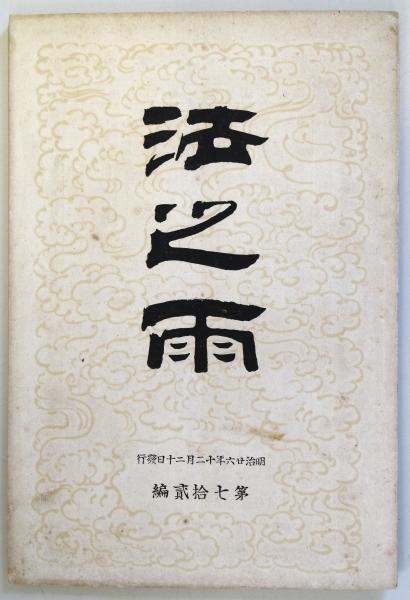 法之雨
明治廿六年十二月二十日發行
第七拾貳編